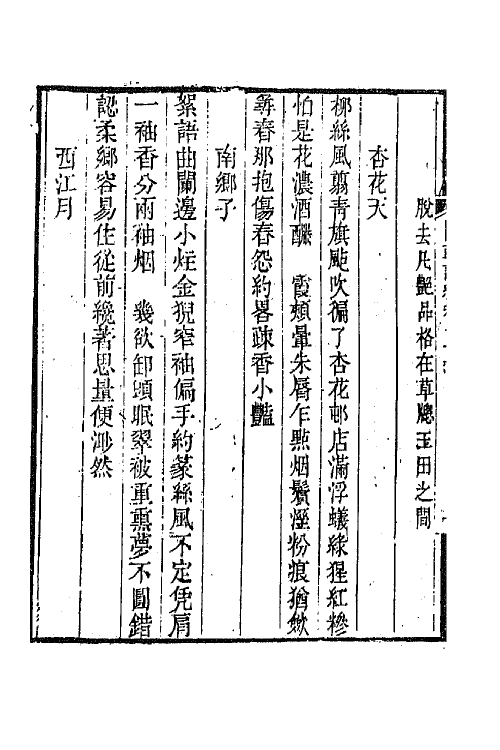 脫去凡艷品格在草牕玉田之間
杏花天
柳絲風翦靑旗颭吹徧了杏花邨店滿浮蟻綠猩紅糝
怕是花濃酒釅　霞頰暈朱脣乍㸃烟鬟溼粉痕猶斂
尋春那抱傷春怨約畧疎香小豔
南鄉子
絮語曲闌邊小炷金猊窄袖偏手約篆絲風不定凭肩
一袖香分兩袖烟　幾欲卸頭眠翠被重熏夢不圓錯
認柔鄉容易住從前纔著思量便渺然
西江月